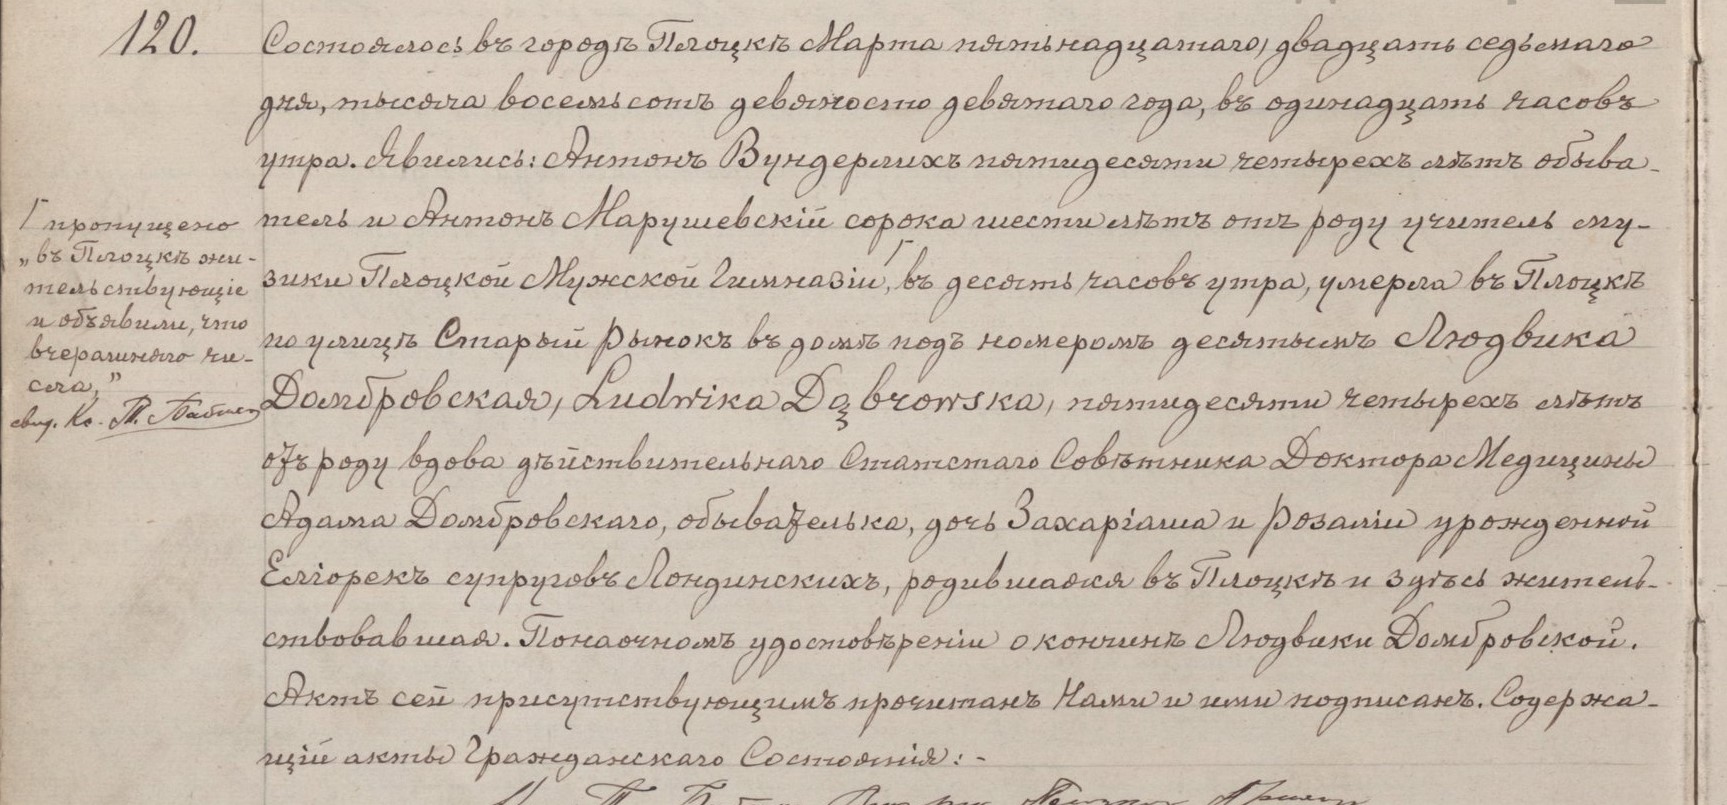 120.
Состоялось въ городѣ Плоцкѣ Марта пятьнадцатаго, двадцать седьмаго
дня, тысяча восемьсотъ девяносто девятаго года, въ одинадцать часовъ
утра. Явились: Антонъ Вундерлихъ пятидесяти четырехъ лѣтъ обыва-
тель и Антонъ Марушевскій сорока шести лѣтъ отъ роду учитель му-
зики Плоцкой Мужской Гимназіи, въ десять часовъ утра, умерла въ Плоцкѣ
по улицѣ Старый Рынокъ въ домѣ подъ номеромъ десятымъ Людвика
Домбровская, Ludwika Dąbrowska, пятидесяти четырехъ лѣтъ
отъ роду вдова дѣйствительнаго Статстаго Совѣтника Доктора Медицины
Адама Домбровскаго, обывателька, дочь Захаріаша и Розаліи урожденной
Еліорекъ супруговъ Лондинскихъ, родившаяся въ Плоцкѣ и здѣсь житель-
ствовавшая. По наочномъ удостовѣреніи о кончинѣ Людвики Домбровской.
Актъ сей присутствующимъ прочитанъ Нами и ими подписанъ. Содержа-
щій акты Гражданскаго Состоянія: -
Г пропущено
„въ Плоцкѣ жи-
тельствующіе
и объявили, что
вчерашняго чи-
сла,"
свид. Кс. П.